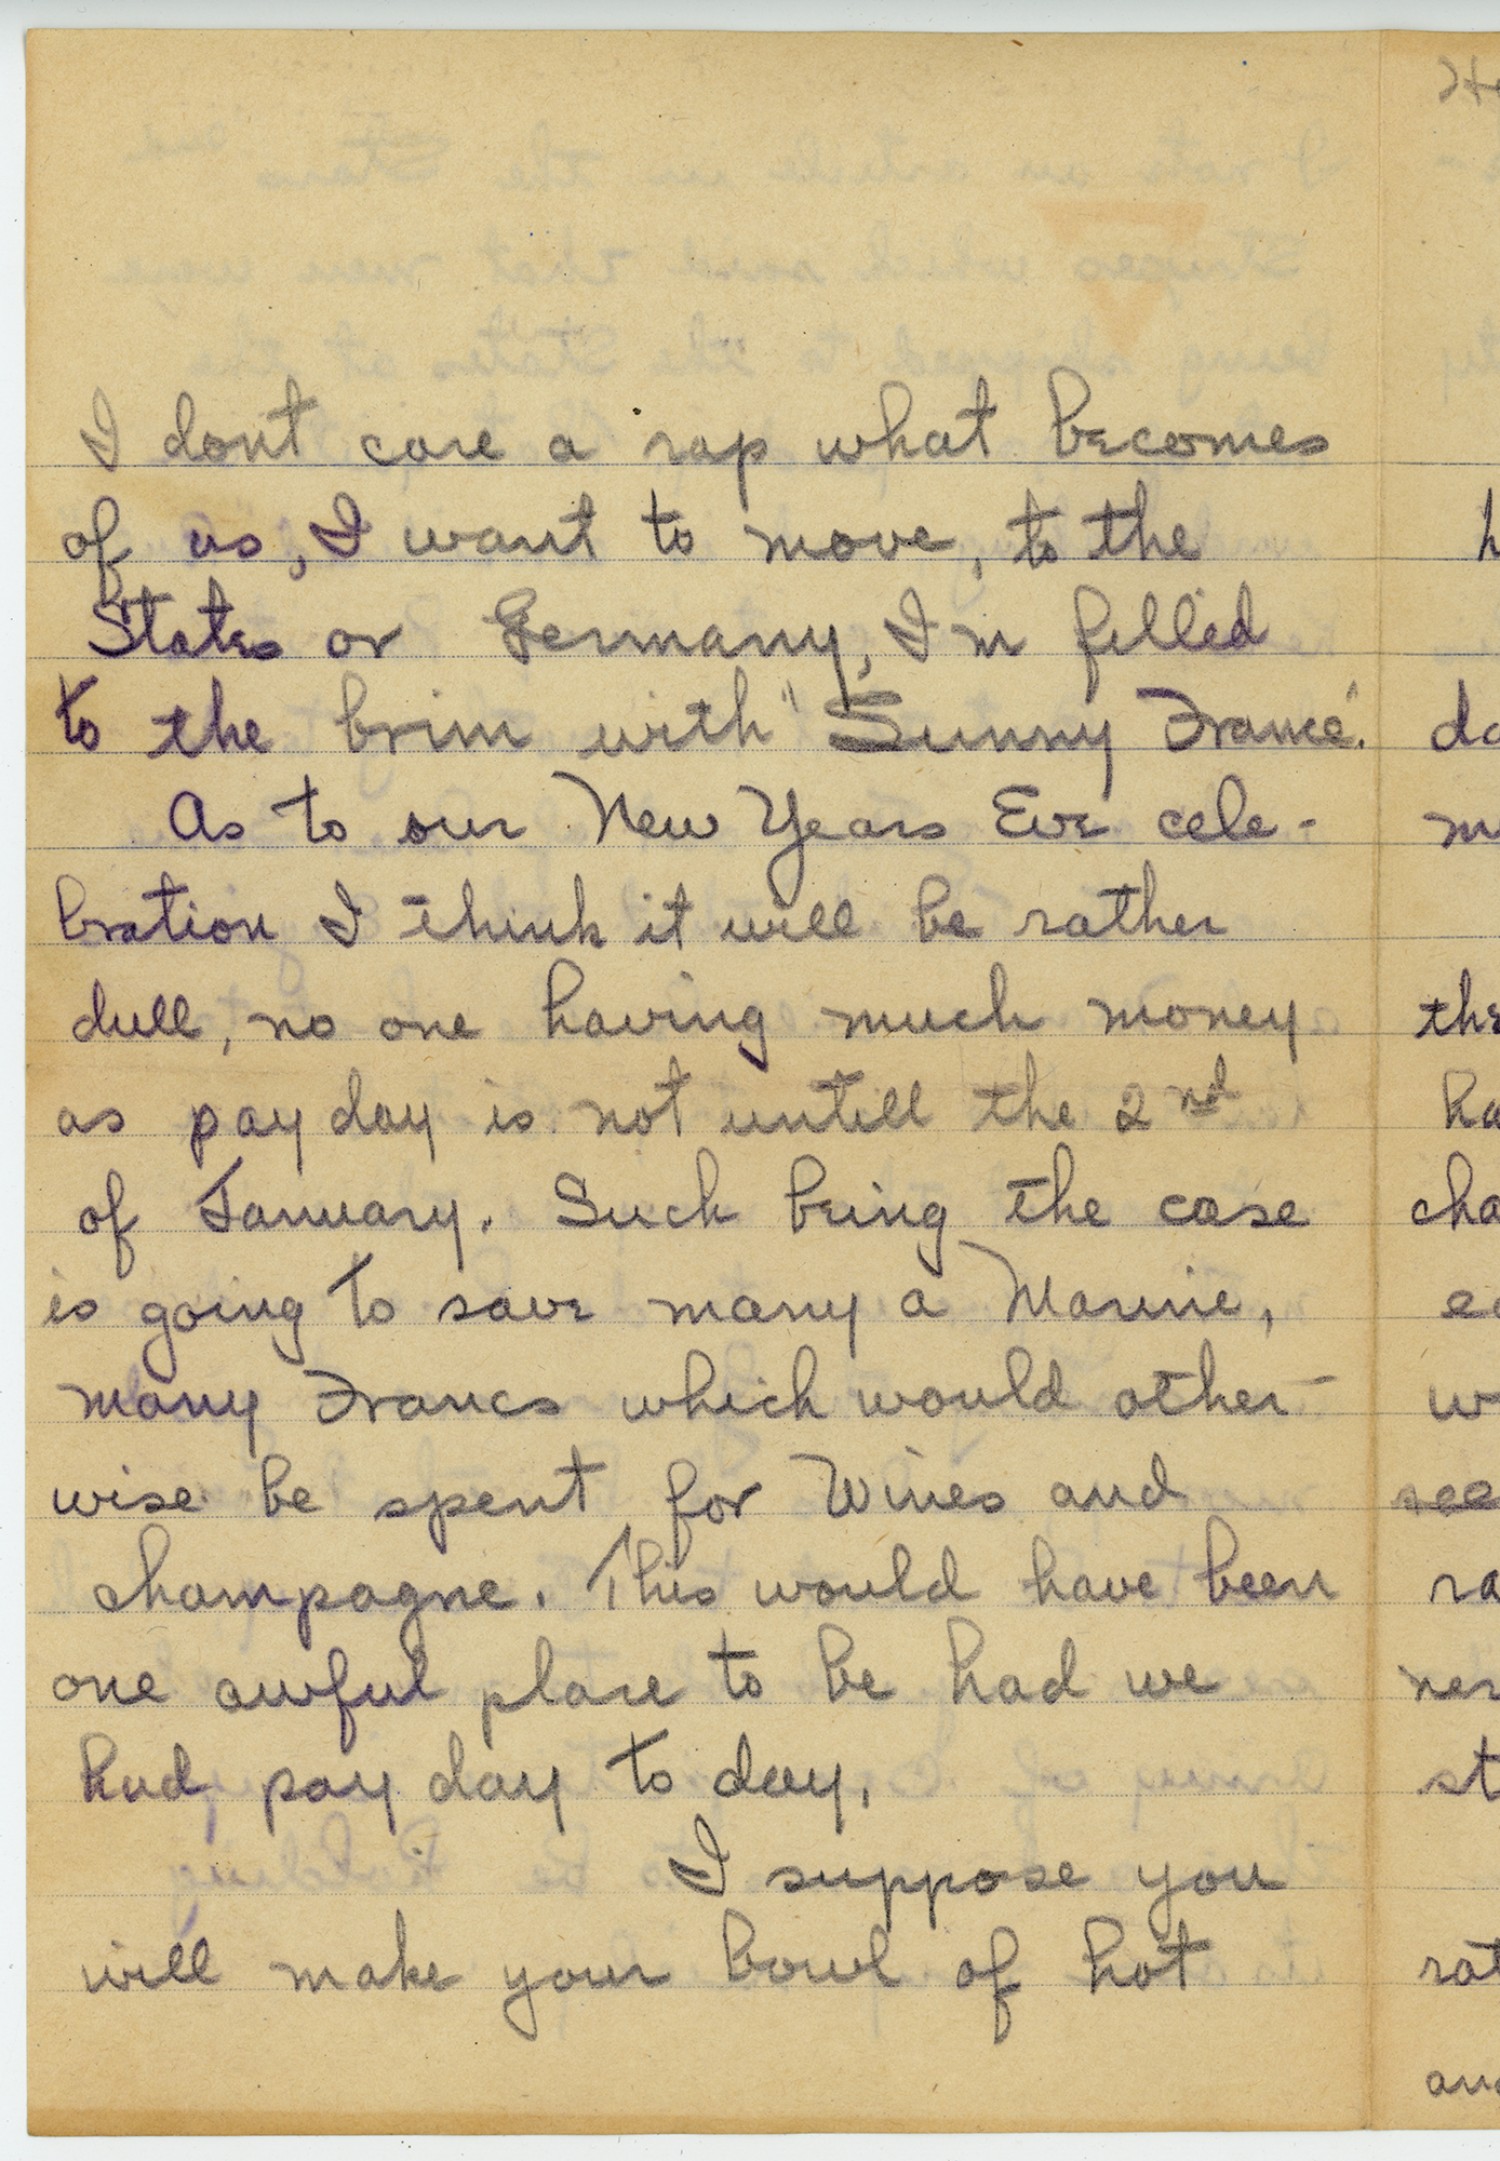 I dont care a rap what becomes
of us, I want to move, to the
States or Germany, I'm filled
to the brim with "Sunny France".
As to our New Years Eve cele-
bration I think it will be rather
dull, no one having much money
as pay day is not untill the 2nd
of January. Such being the case
is going to save many a Marine,
many Francs which would other-
wise be spent for Wines and
champagne. This would have been
one awful place to be had we
had pay day to day.
I suppose you
will make your bowl of hot